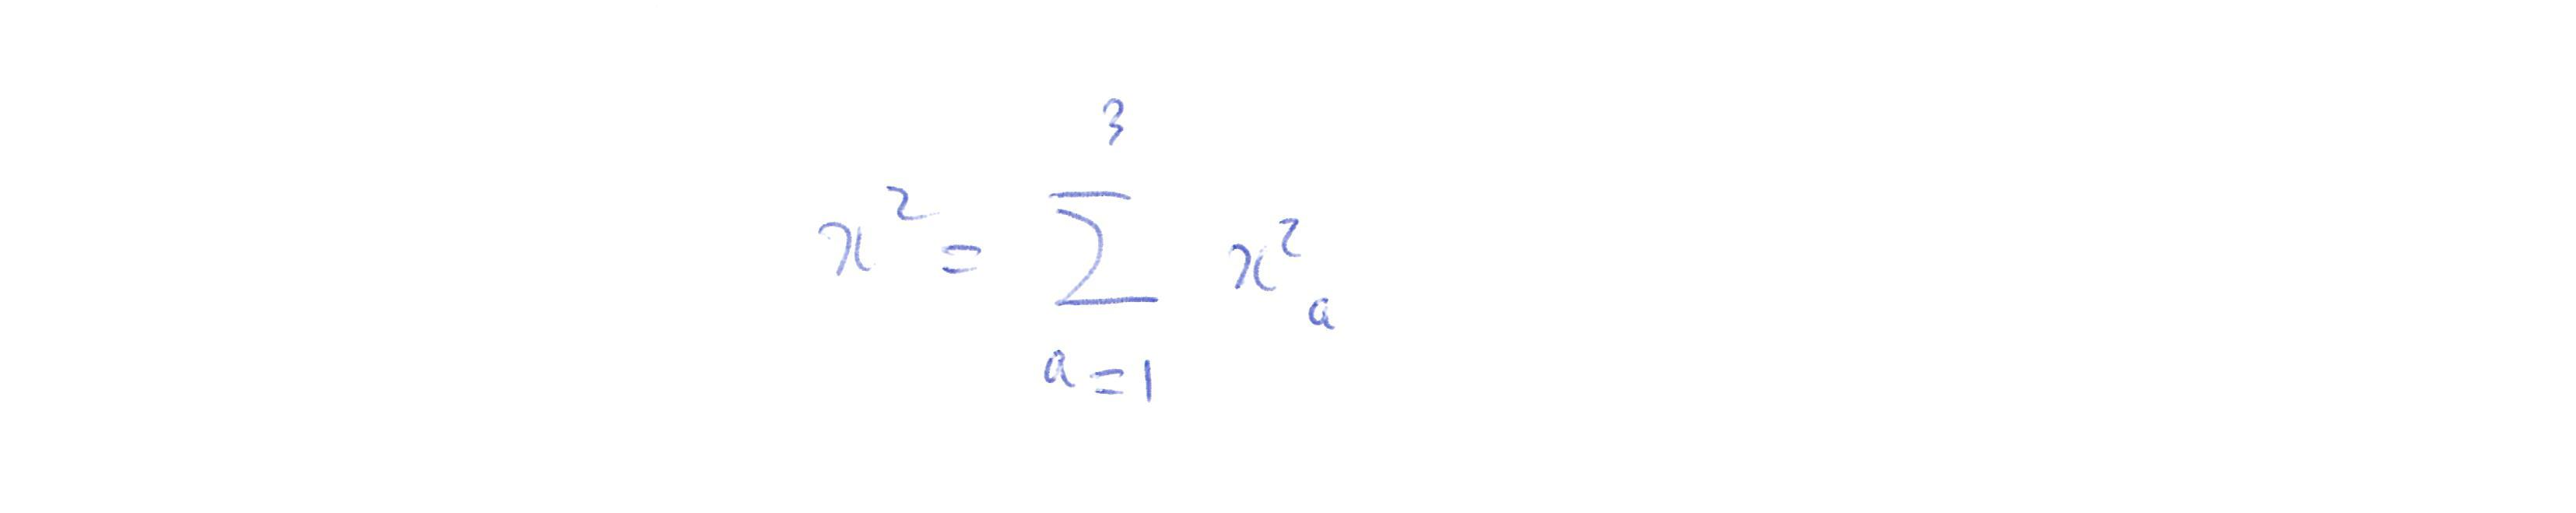 x^2 = \sum_{a=1}^{3} x^2_a